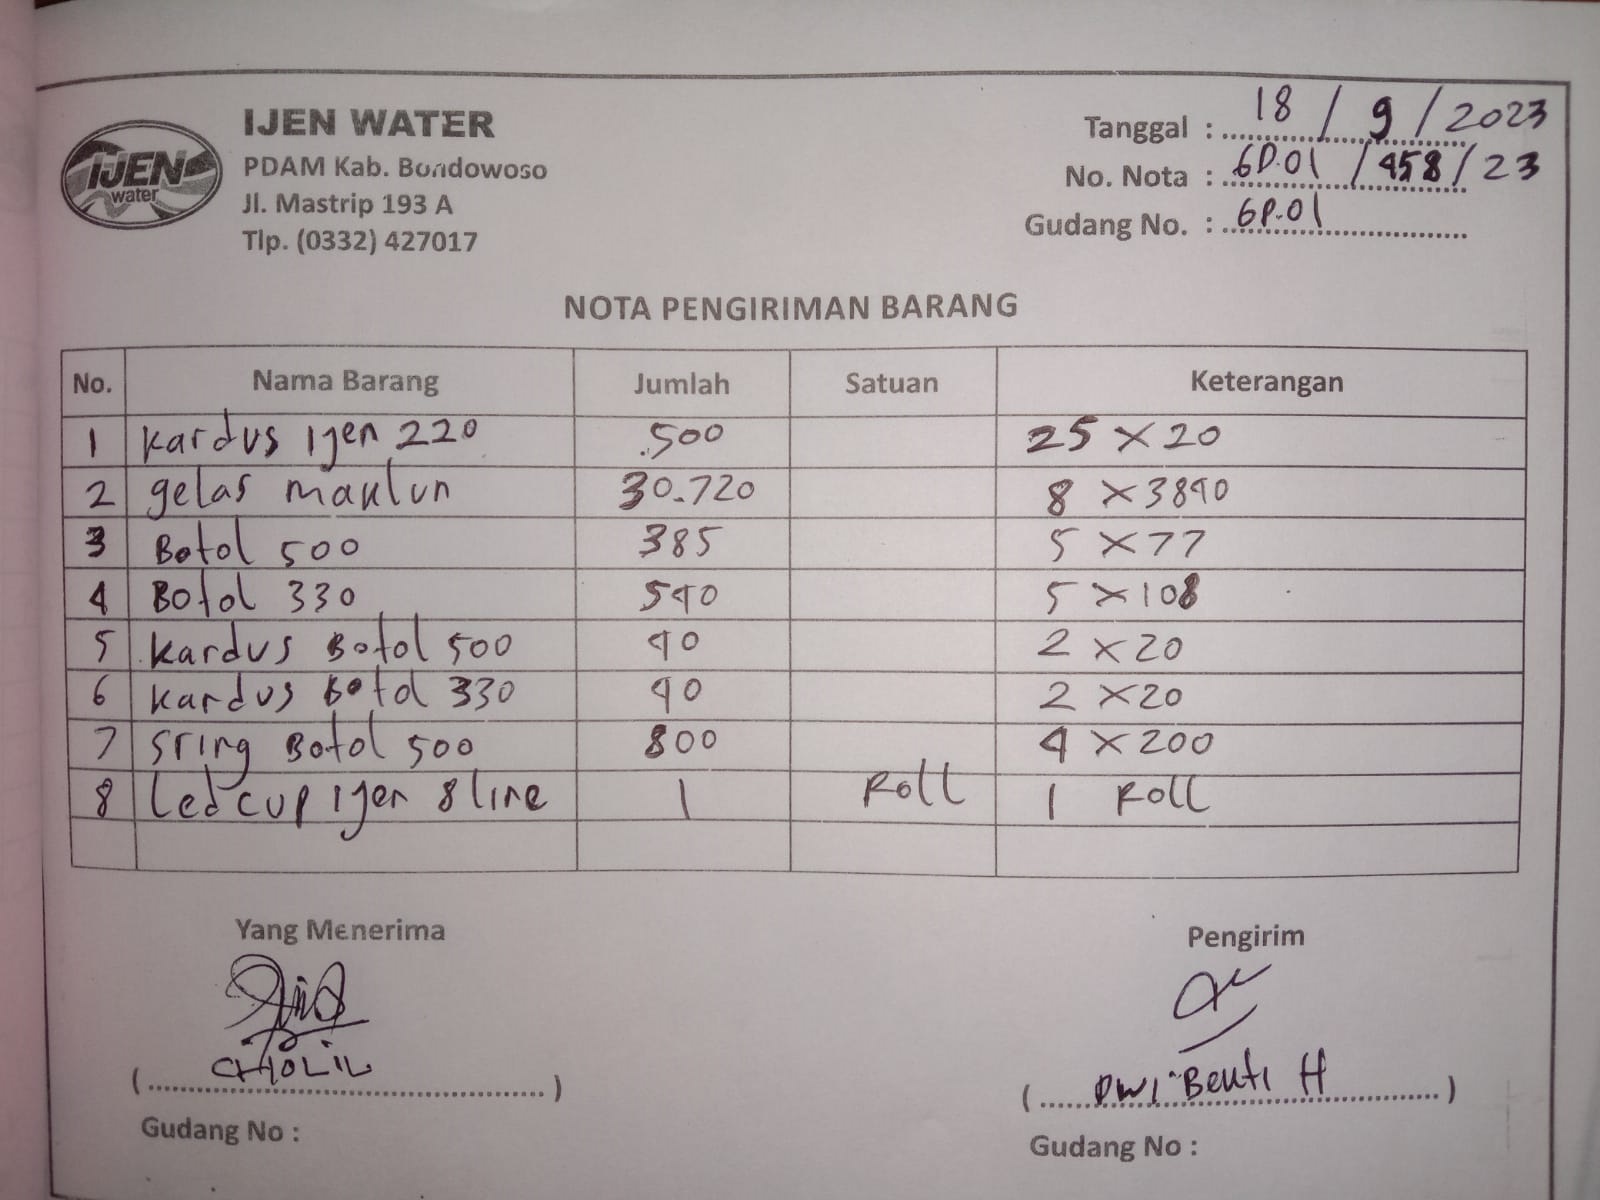 IJEN WATER
PDAM Kab. Bondowoso
Jl. Mastrip 193 A
Tlp. (0332) 427017
IJEN
water
Tanggal : 18 / 9 / 2023
No. Nota : GD.01 / 458 / 23
Gudang No. : GP.01
NOTA PENGIRIMAN BARANG
No. Nama Barang Jumlah Satuan Keterangan
1 Kardus Ijen 220 500 25 X 20
2 gelas maklun 30.720 8 X 3840
3 Botol 500 385 5 X 77
4 Botol 330 540 5 X 108
5 Kardus Botol 500 40 2 X 20
6 Kardus Botol 330 40 2 X 20
7 Sring Botol 500 800 4 X 200
8 Led cup Ijen 8 line 1 Roll 1 Roll
Yang Menerima
CHOLIL
Gudang No :
Pengirim
DWI Benti H
Gudang No :